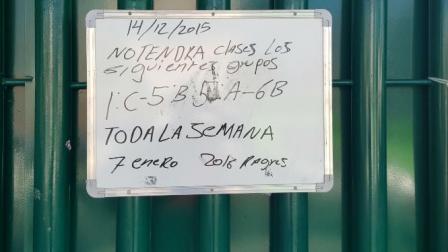 14/12/2015
NOTENDRA clases los
siguientes grupos
1:C-5°B 5°A-6B
TODA LA SEMANA
7 enero 2016 Regres